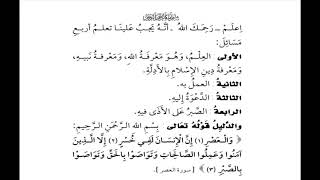 اِعلَمْ ـ رَحِمَكَ اللهُ ـ أَنَّهُ يَجِبُ عَلَيْنَا تَعلُّمُ أَرْبَعِ
مَسَائِلَ:
الأُولَى: العِلْمُ، وَهُوَ مَعْرِفَةُ اللهِ، وَمَعْرِفَةُ نَبِيِّهِ،
وَمَعْرِفَةُ دِينِ الإِسْلَامِ بِالأَدِلَّةِ.
الثَّانِيَةُ: العَمَلُ بِهِ.
الثَّالِثَةُ: الدَّعْوَةُ إِلَيْهِ.
الرَّابِعَةُ: الصَّبْرُ عَلَى الأَذَى فِيهِ.
وَالدَّلِيلُ قَوْلُهُ تَعَالَى: بِسْمِ اللهِ الرَّحْمَنِ الرَّحِيمِ:
﴿وَالْعَصْرِ (١) إِنَّ الْإِنسَانَ لَفِي خُسْرٍ (٢) إِلَّا الَّذِينَ
آمَنُوا وَعَمِلُوا الصَّالِحَاتِ وَتَوَاصَوْا بِالْحَقِّ وَتَوَاصَوْا
بِالصَّبْرِ (٣)﴾ [سورة العصر].